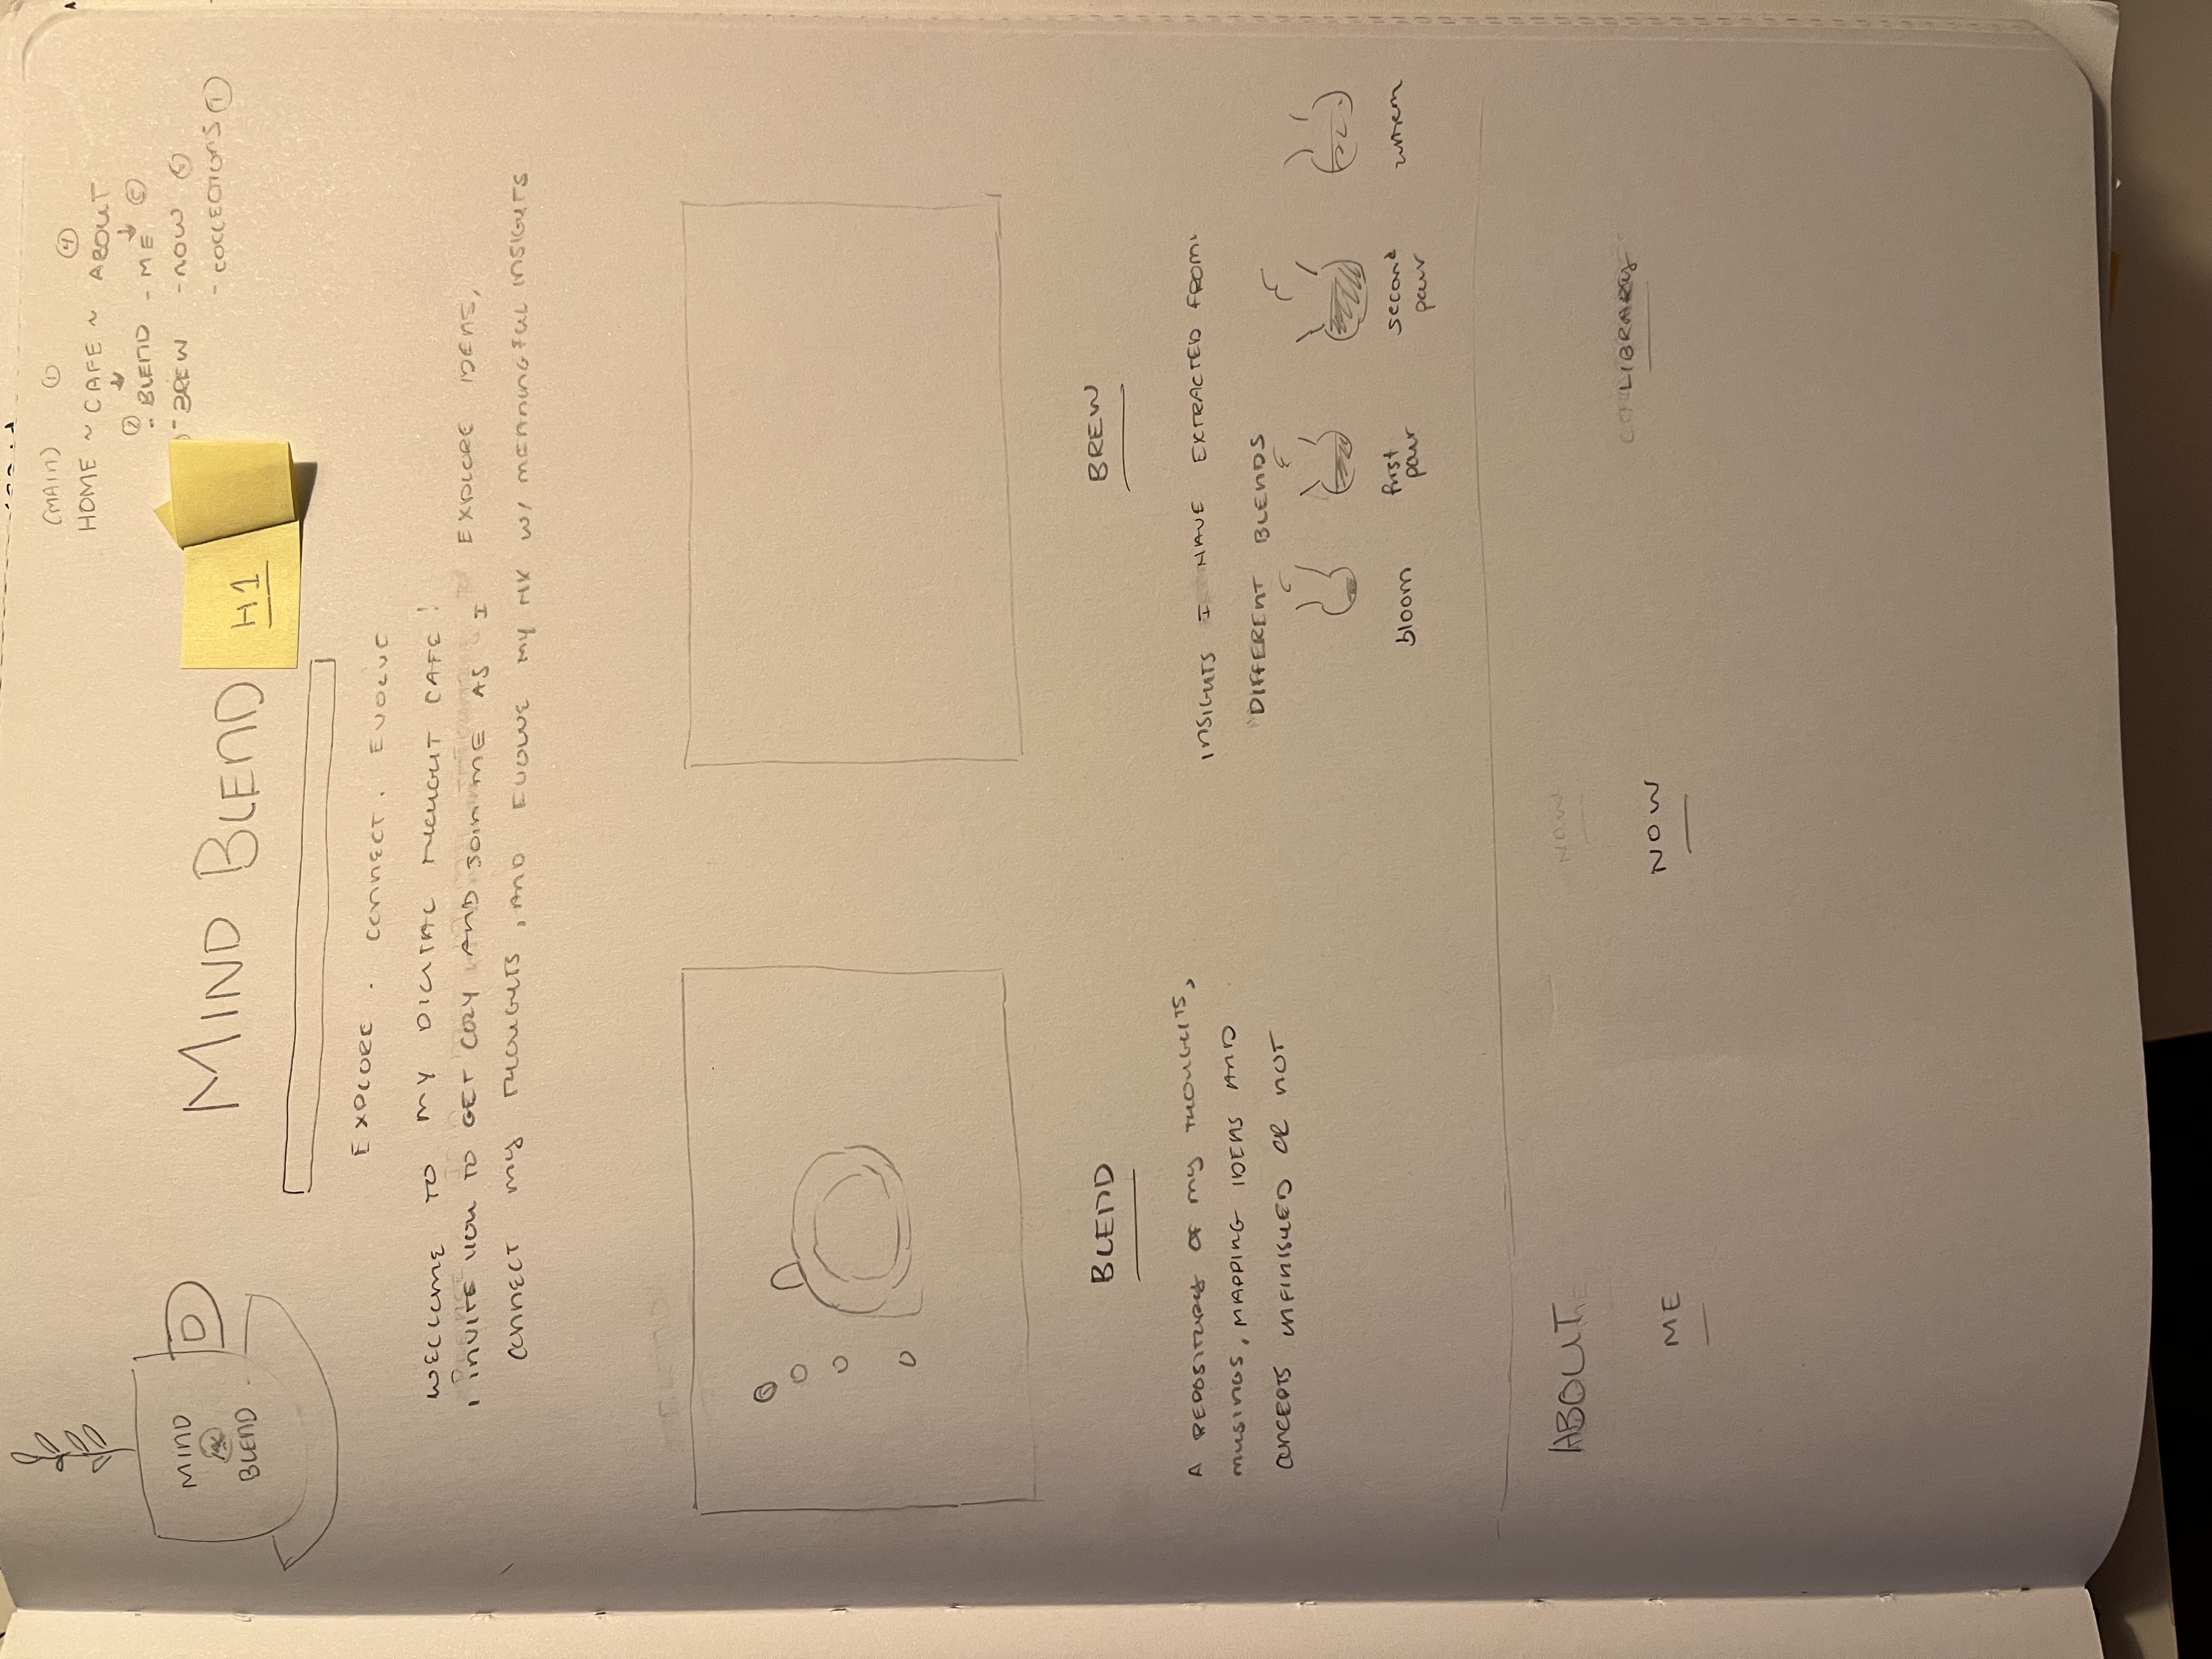 (MAIN) ①
④
HOME ~ CAFE ~ ABOUT
② - BLEND - ME ⑤
- BREW - NOW ⑥
- COLLECTIONS
MIND
BLEND
MIND BLEND
H1
EXPLORE . CONNECT . EVOLVE
WELCOME TO MY DIGITAL THOUGHT CAFE!
I INVITE YOU TO GET COZY AND JOIN ME AS I EXPLORE IDEAS,
CONNECT MY THOUGHTS, AND EVOLVE MY W/ MEANINGFUL INSIGHTS
BLEND
BREW
A REPOSITORY OF MY THOUGHTS,
MUSINGS, MAPPING IDEAS AND
CONCEPTS UNFINISHED OR NOT
INSIGHTS I HAVE EXTRACTED FROM
DIFFERENT BLENDS
bloom
first
pour
second
pour
ABOUT
NOW
LIBRARY
ME
NOW